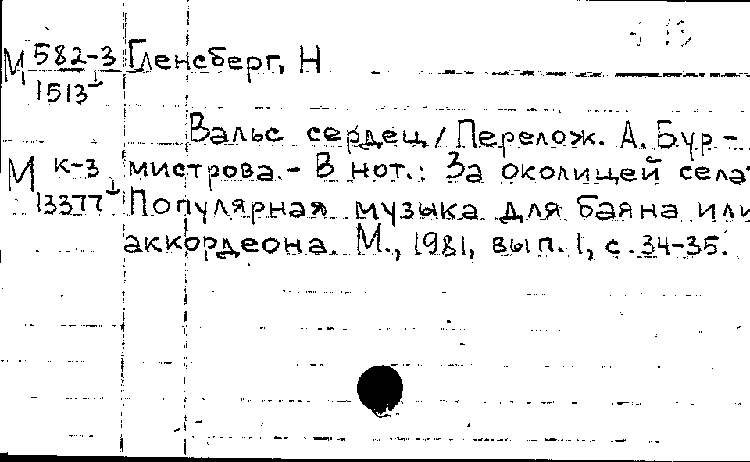 М 582-3 Гленсберг, Н
1513
Вальс сердец / Перелож. А. Бур-
М к-3 мистрова. - В нот.: За околицей села:
13377 Популярная музыка для баяна или
аккордеона. М., 1981, вып. 1, с. 34-35.